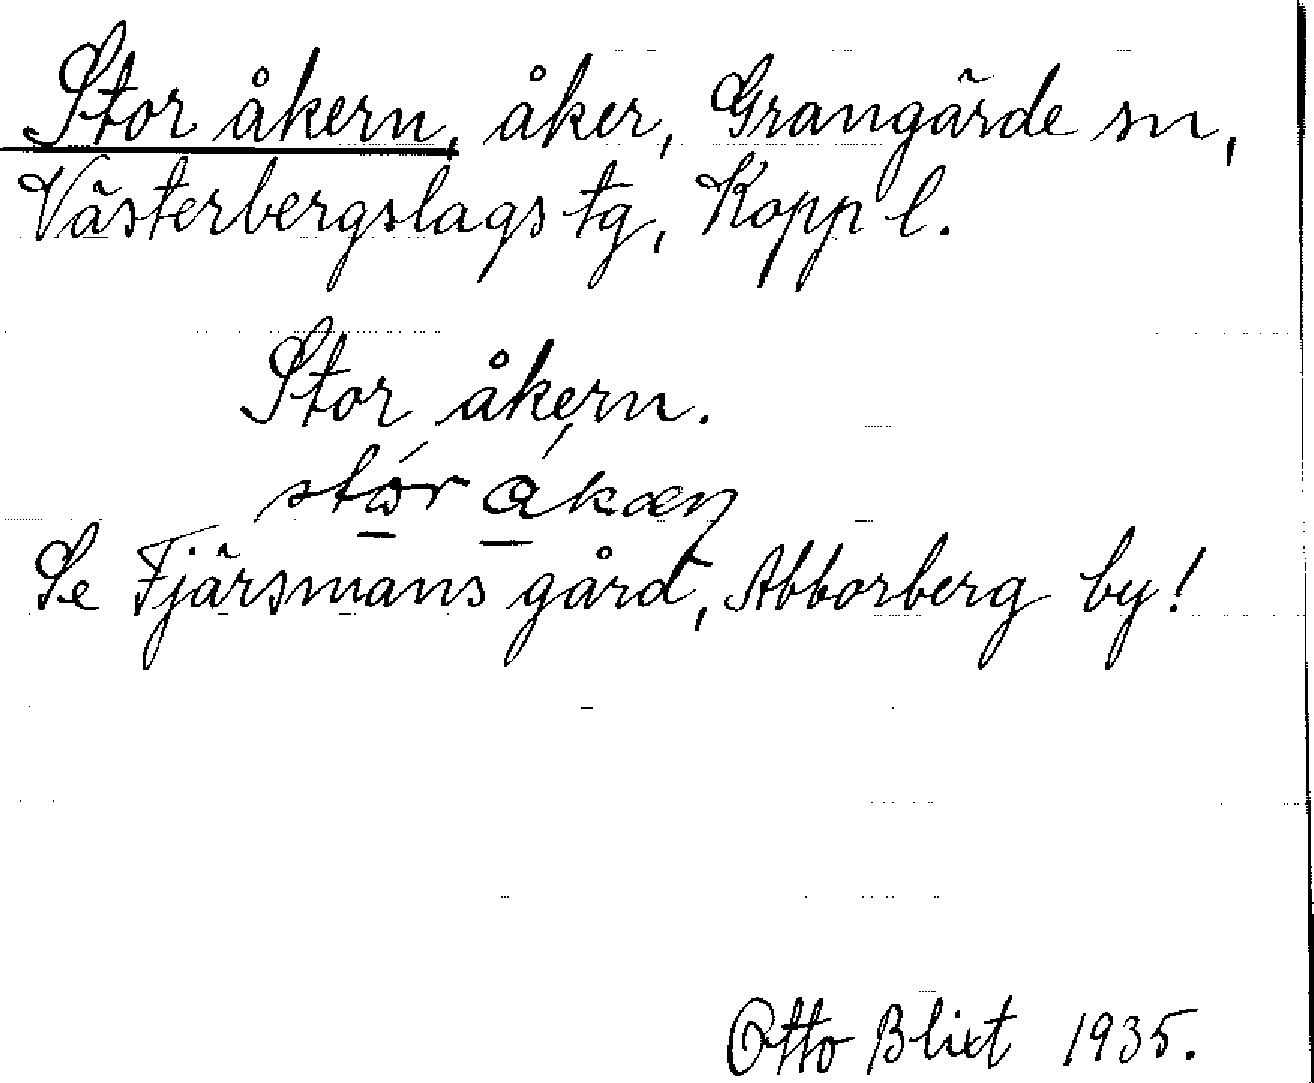 Stor åkern, åker, Grangärde sn,
Västerbergslags tg, Kopp l.
Stor åkern.
stór åkæn
Se Fjärsmans gård, Abborberg by!
Otto Blixt 1935.